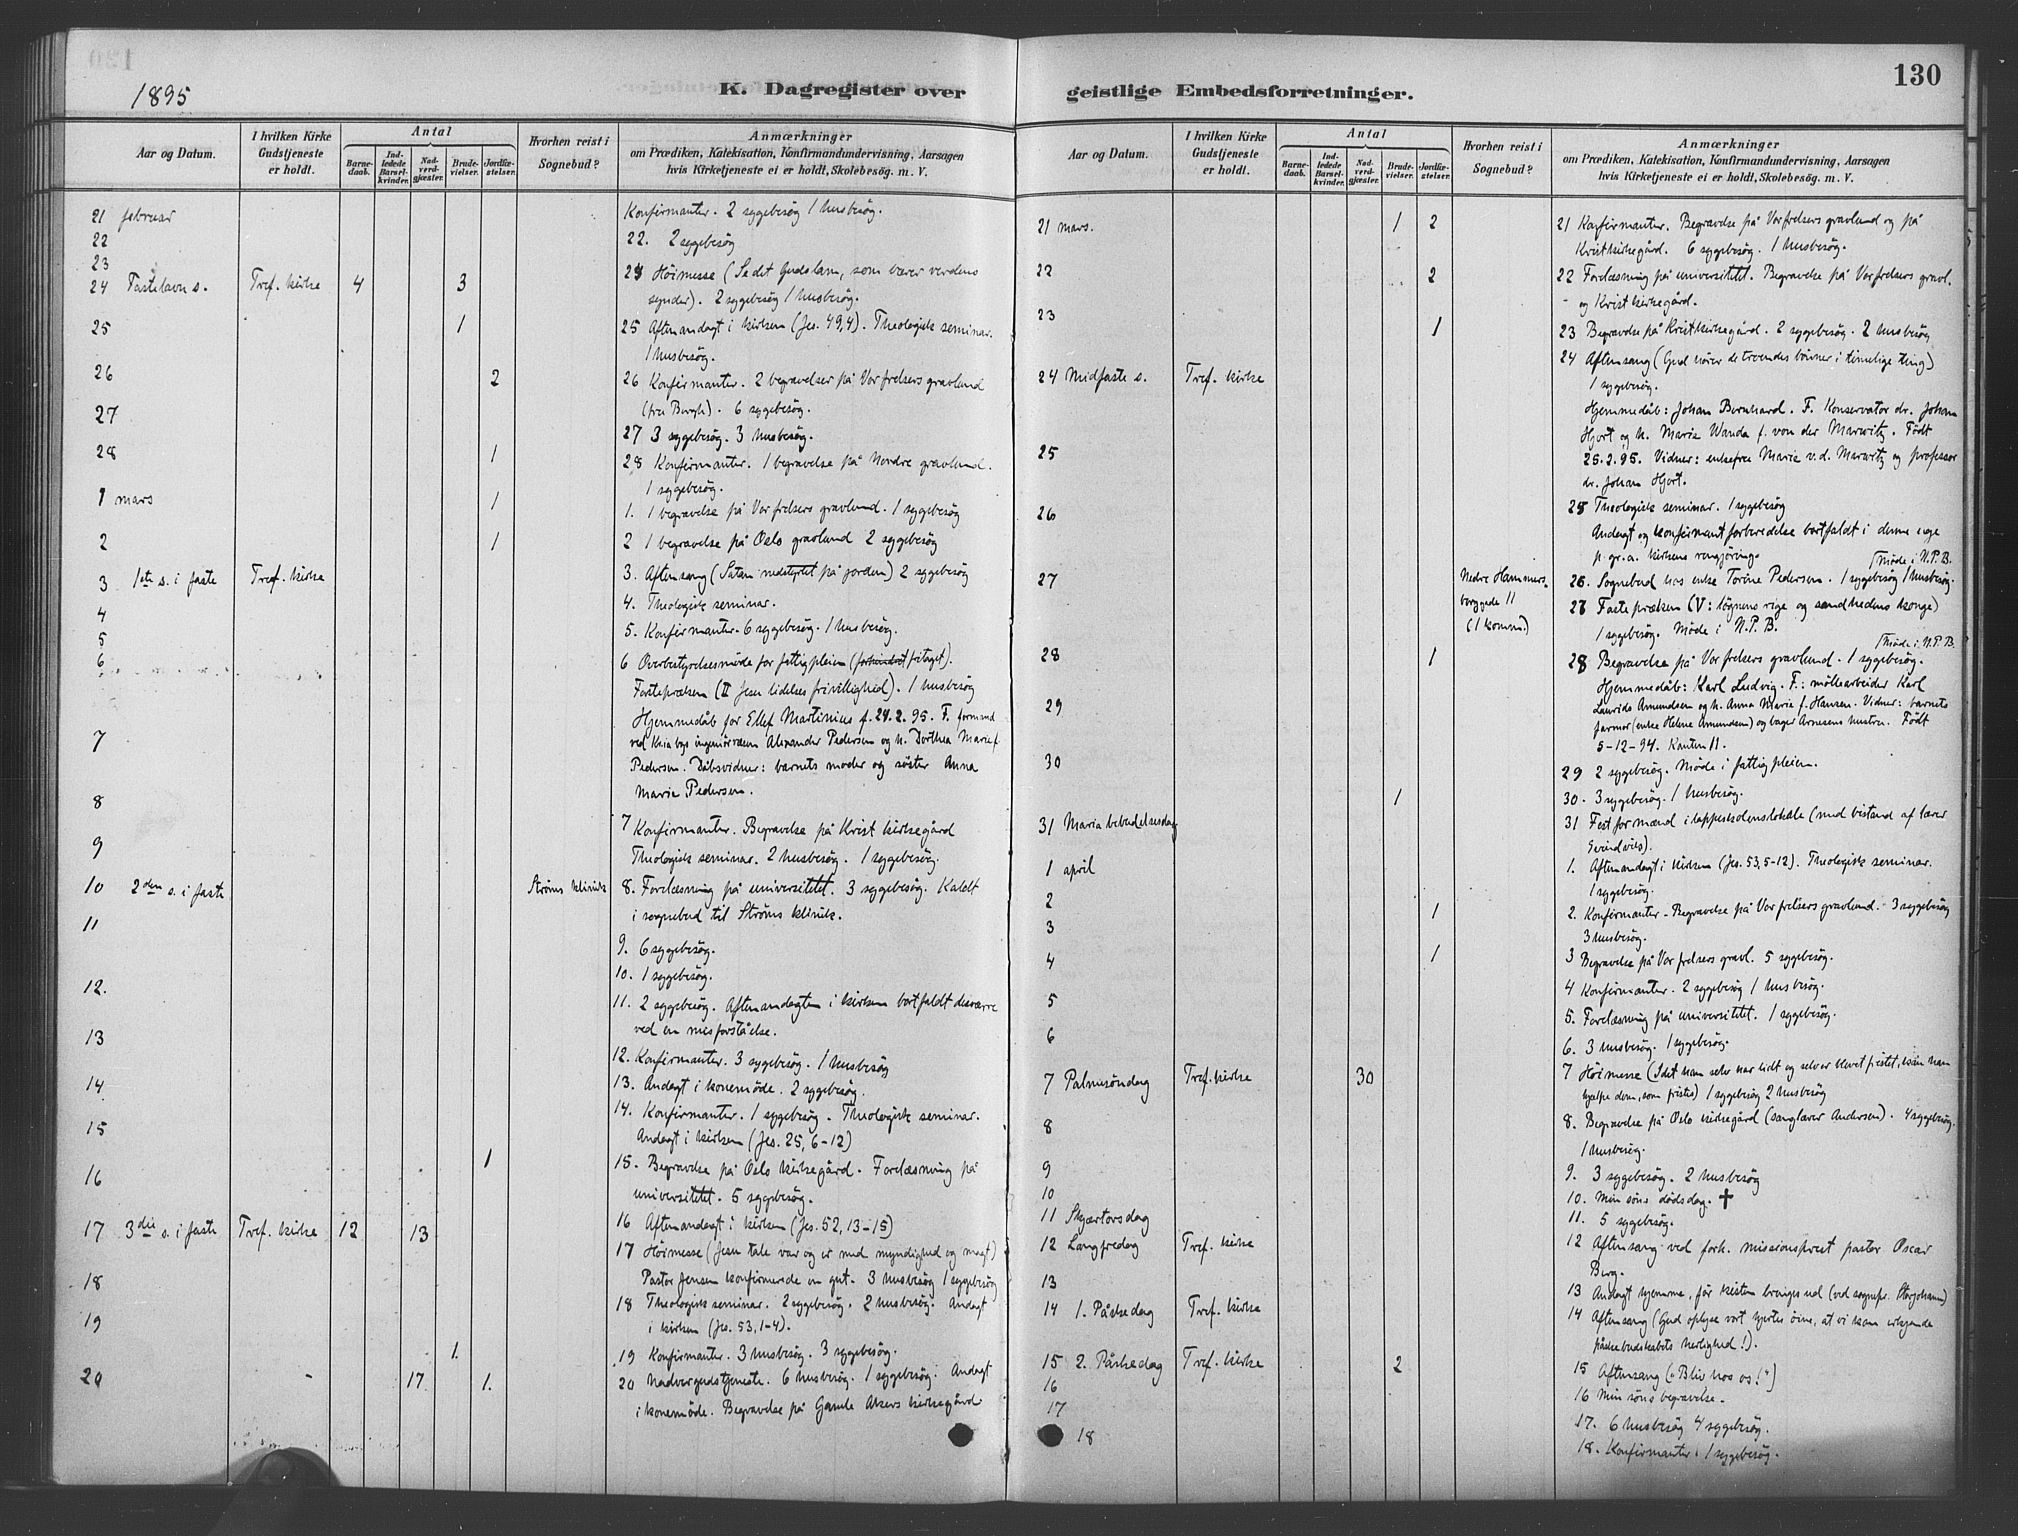 1895
K. Dagregister over
Aar og Datum.
I hvilken Kirke Gudstjeneste er holdt.
Antal
Barnedaab.
Indledede Barselkvinder.
Nadverdgjæster.
Brudevielser.
Jordfæstelser.
Hvorhen reist i Sognebud?
Anmærkninger
om Prædiken, Katekisation, Konfirmandundervisning, Aarsagen
hvis Kirketjeneste ei er holdt, Skolebesøg. m. V.
21 februar
Konfirmanter. 2 sygebesög 1 husbesög.
22
22. 2 sygebesög
23
24 Fastelavn s. Tref. kirke 4 3
24 Höimesse (Se det Guds lam, som bærer verdens
synder). 2 sygebesög 1 husbesög.
25 1
25 Aftenandagt i kirken (Jes. 49,4). Theologisk seminar.
1 husbesög.
26 2
26 Konfirmanter. 2 begravelser på Vor frelsers gravlund
6 sygebesög.
27
27 3 sygebesög. 3 husbesög.
28 1
28 Konfirmanter. 1 begravelse på Nordre gravlund.
1 sygebesög.
1 mars 1
1. 1 begravelse på Vor frelsers gravlund. 1 sygebesög
2 1
2 1 begravelse på Oslo gravlund 2 sygebesög
3 1ste s. i faste Tref. kirke
3. Aftensang (Satan nedstyrtet på jorden) 2 sygebesög
4
4. Theologisk seminar.
5
5. Konfirmanter. 6 sygebesög. 1 husbesög.
6
6 Overbestyrelsesmöde for fattigpleien (forhindret fritaget).
Fastepræken (II Jesu lidelses frivillighed). 1 husbesög
Hjemmedåb for Ellef Martinius f. 24.2.95. F. formand
ved Kria bys ingeniörvæsen Alexander Pedersen og h. Dorthea Marie f.
7
Pedersen. Dåbsvidner: barnets moder og söster Anna
Marie Pedersen.
8
7 Konfirmanter. Begravelse på Krist kirkegård
9
Theologisk seminar. 2 husbesög. 1 sygebesög.
10 2den s. i faste Ströms klinik
8. Forelæsning på universitetet. 3 sygebesög. Kaldt
i sognebud til Ströms klinik.
11
9. 6 sygebesög.
10. 1 sygebesög.
12.
11. 2 sygebesög. Aftenandagten i kirken bortfaldt desværre
ved en misforståelse.
13
12. Konfirmanter. 3 sygebesög. 1 husbesög
14
13. Andagt i konemöde. 2 sygebesög.
14. Konfirmanter. 1 sygebesög. Theologisk seminar.
15
Andagt i kirken (Jes. 25, 6-12)
1
15. Begravelse på Oslo kirkegård. Forelæsning på
16
universitetet. 5 sygebesög.
16 Aftenandagt i kirken (Jes. 52, 13-15)
17 3die s. i faste Tref. kirke 12 13
17 Höimesse (Jesu tale var og er med myndighed og magt)
Pastor Jensen konfirmerede en gut. 3 husbesög 1 sygebesög
18
18 Theologisk seminar. 2 sygebesög. 2 husbesög. Andagt
i kirken (Jes. 53, 1-4).
19 1.
19 Konfirmanter. 3 husbesög. 3 sygebesög.
20 17 1.
20 Nadvergudstjeneste. 6 husbesög. 1 sygebesög. Andagt
i konemöde. Begravelse på Gamle Akers kirkegård
geistlige Embedsforretninger.
130
Aar og Datum.
I hvilken Kirke Gudstjeneste er holdt.
Antal
Barnedaab.
Indledede Barselkvinder.
Nadverdgjæster.
Brudevielser.
Jordfæstelser.
Hvorhen reist i Sognebud?
Anmærkninger
om Prædiken, Katekisation, Konfirmandundervisning, Aarsagen
hvis Kirketjeneste ei er holdt, Skolebesøg. m. V.
21 mars. 1 2
21 Konfirmanter. Begravelse på Vor frelsers gravlund og på
Krist kirkegård. 6 sygebesög. 1 husbesög.
22 2
22 Forelæsning på universitetet. Begravelse på Vor frelsers gravl.
og Krist kirkegård.
23 1
23 Begravelse på Krist kirkegård. 2 sygebesög. 2 husbesög
24 Midfaste s. Tref. kirke
24 Aftensang (Gud hörer de troendes bönner i timelige ting)
1 sygebesög.
Hjemmedåb: Johan Bernhard. F. Konservator dr. Johan
Hjort og h. Maria Wanda f. von der Marwitz. Født
25
25.2.95. Vidner: enkefrue Maria v.d. Marwitz og professor
dr. Johan Hjort.
26
25 Theologisk seminar. 1 sygebesög
Andagt og konfirmantforberedelse bortfaldt i denne uge
p. gr. a. kirkens rengjöring.
Möde i N.P.B.
27 Nedre Hammersborggade 11 (1 komm.)
26. Sognebud hos enke Torine Pedersen. 1 sygebesög 1 husbesög.
27 Fastepræken (V: lögnens rige og sandhedens konge)
1 sygebesög. Möde i N.P.B.
Möde i N.P.B.
28 1
28 Begravelse på Vor frelsers gravlund. 1 sygebesög.
Hjemmedåb: Karl Ludvig. F.: möllearbeider Karl
29
Laurids Amundsen og h. Anna Maria f. Hansen. Vidner: barnets
farmor (enke Helene Amundsen) og bager Arnesens hustru. Født
5-12-94. Kanten 11.
30 1
29 2 sygebesög. Möde i fattigpleien.
30. 3 sygebesög. 1 husbesög.
31 Maria bebudelsesdag
31 Fest for mænd i lokale (med bistand af lærer
1 april
1. Aftenandagt i kirken (Jes. 53, 5-12). Theologisk seminar.
1 sygebesög.
2 1
2. Konfirmanter. Begravelse på Vor frelsers gravlund. 3 sygebesög
3 husbesög.
3
4 1
3 Begravelse på Vor frelsers gravl. 5 sygebesög.
4 Konfirmanter. 2 sygebesög 1 husbesög.
5
5. Forelæsning på universitetet. 1 sygebesög.
6
6. 3 husbesög. 1 sygebesög.
7 Palmesöndag Tref. kirke 30
7 Höimesse (Idet han selv har lidt og selv er blevet fristet, kan han
hjelpe dem, som fristes) 1 sygebesög 2 husbesög
8
8. Begravelse på Oslo kirkegård (sanglærer Andersen). 4 sygebesög.
1 husbesög.
9
9. 3 sygebesög. 2 husbesög
10
10. Min söns dödsdag. ✝
11 Skjærtorsdag
11. 5 sygebesög.
12 Langfredag Tref. kirke
12 Aftensang ved forh. missionsprest pastor Oscar
Berg.
13
13 Andagt hjemme, för kisten bringes ud (ved sognepr. Storjohann)
14 1. Påskedag Tref. kirke
14 Aftensang (Gud oplyse vort hjertes öine, at vi kan erkjende
påskebudskabets herlighed!).
15 2. Påskedag Tref. kirke 2
15 Aftensang („Bliv hos os!")
16
16 Min söns begravelse.
17
17. 6 husbesög 4 sygebesög.
18
18. Konfirmanter. 1 sygebesög.